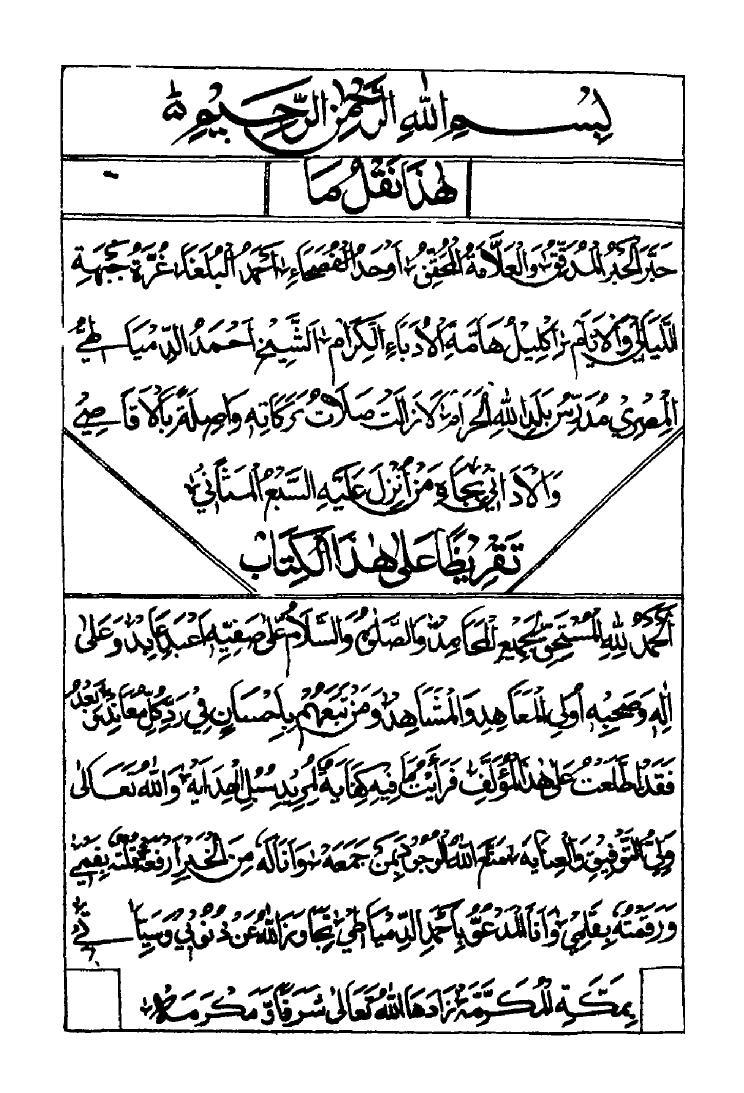 بِسْمِ اللهِ الرَّحْمٰنِ الرَّحِيْمِ
هٰذَا نَقْلُ مَا
حَبَّرَ الْحَبْرُ الْمُدَقِّقُ وَالْعَلَّامَةُ الْمُحَقِّقُ اَوْحَدُ الْفُصَحَاءِ اَحْمَدُ الْبُلَغَاءِ غُرَّةُ جَبْهَةِ
اللَّيَالِيْ وَالْاَيَّامِ اِكْلِيْلُ هَامَةِ الْاُدَبَاءِ الْكِرَامِ الشَّيْخُ اَحْمَدُ الدِّمْيَاطِيُّ
الْمِصْرِيْ مُدَرِّسُ بَلَدِ اللهِ الْحَرَامِ لَازَالَتْ صَلَاتُ بَرَكَاتِهٖ وَاصِلَةً بِالْاَقَاصِيْ
وَالْاَدَانِيْ بِجَاهِ مَنْ اُنْزِلَ عَلَيْهِ السَّبْعُ الْمَثَانِيْ
تَقْرِيْظًا عَلٰى هٰذَا الْكِتَابِ
اَلْحَمْدُ لِلّٰهِ الْمُسْتَحِقِّ لِجَمِيْعِ الْمَحَامِدِ وَالصَّلٰوةُ وَالسَّلَامُ عَلٰى صَفِيِّهٖ اَعْبَدِ عَابِدٍ وَعَلٰى
اٰلِهٖ وَصَحْبِهٖ اُولِي الْمَعَاهِدِ وَالْمَشَاهِدِ وَمَنْ تَبِعَهُمْ بِاِحْسَانٍ فِيْ رَدِّ كُلِّ مُعَانِدٍ اَمَّا بَعْدُ
فَقَدِ اطَّلَعْتُ عَلٰى هٰذَا الْمُؤَلَّفِ فَرَأَيْتُ مَا فِيْهِ كِفَايَةٌ لِمُرِيْدِ سُبُلِ الْهِدَايَةِ وَاللهُ تَعَالٰى
وَلِيُّ التَّوْفِيْقِ وَالْعِنَايَةِ مَتَّعَ اللهُ الْوُجُوْدَ بِمَنْ جَمَعَهٗ وَاَنَالَهٗ مِنَ الْخَيْرِ اَرْفَعَهٗ قُلْتُهٗ بِفَمِيْ
وَرَقَمْتُهٗ بِقَلَمِيْ وَاَنَا الْمَدْعُوُّ بِاَحْمَدَ الدِّمْيَاطِيْ تَجَاوَزَ اللهُ عَنْ ذُنُوْبِيْ وَسَيِّاٰتِيْ
بِمَكَّةِ الْمُكَرَّمَةِ زَادَهَا اللهُ تَعَالٰى شَرَفًا وَّ مَكْرَمَةً